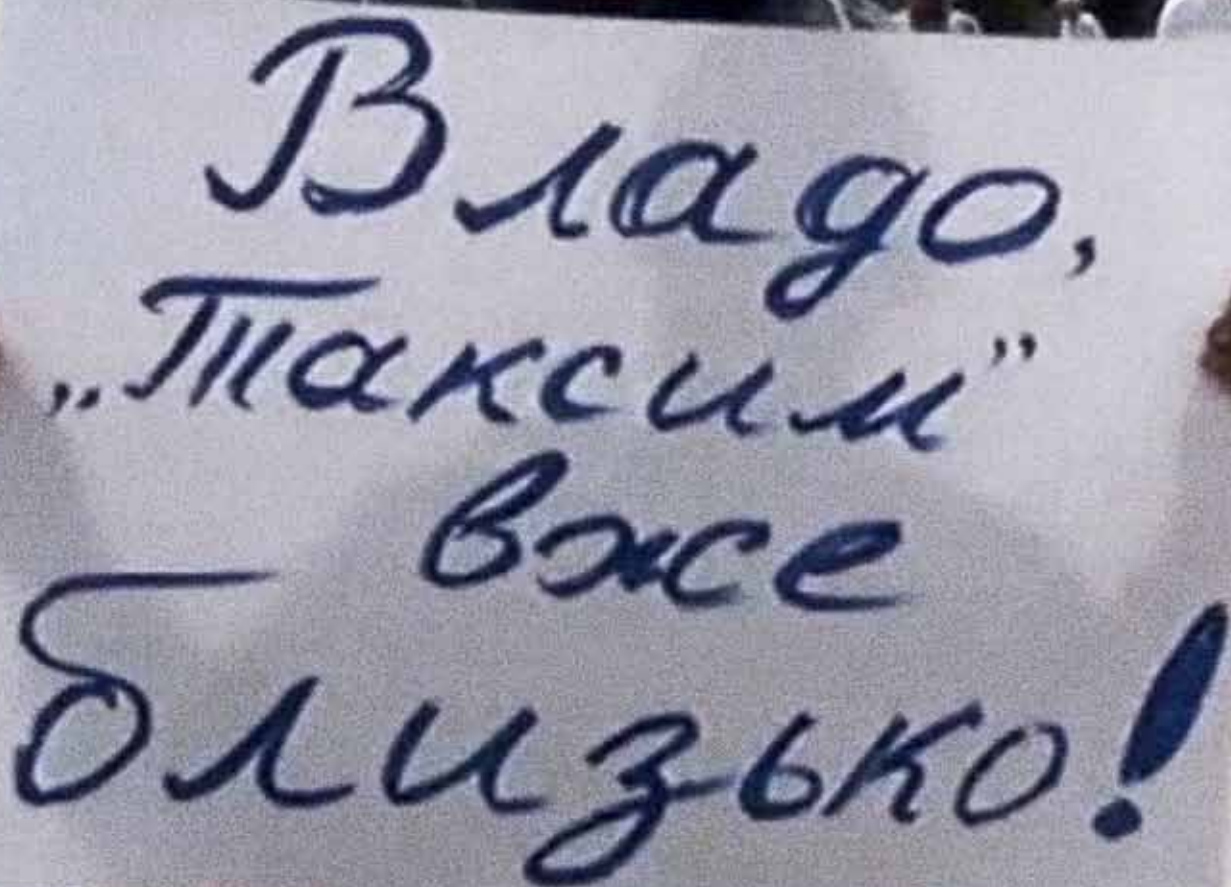 Владо,
„Таксим”
вже
близько!